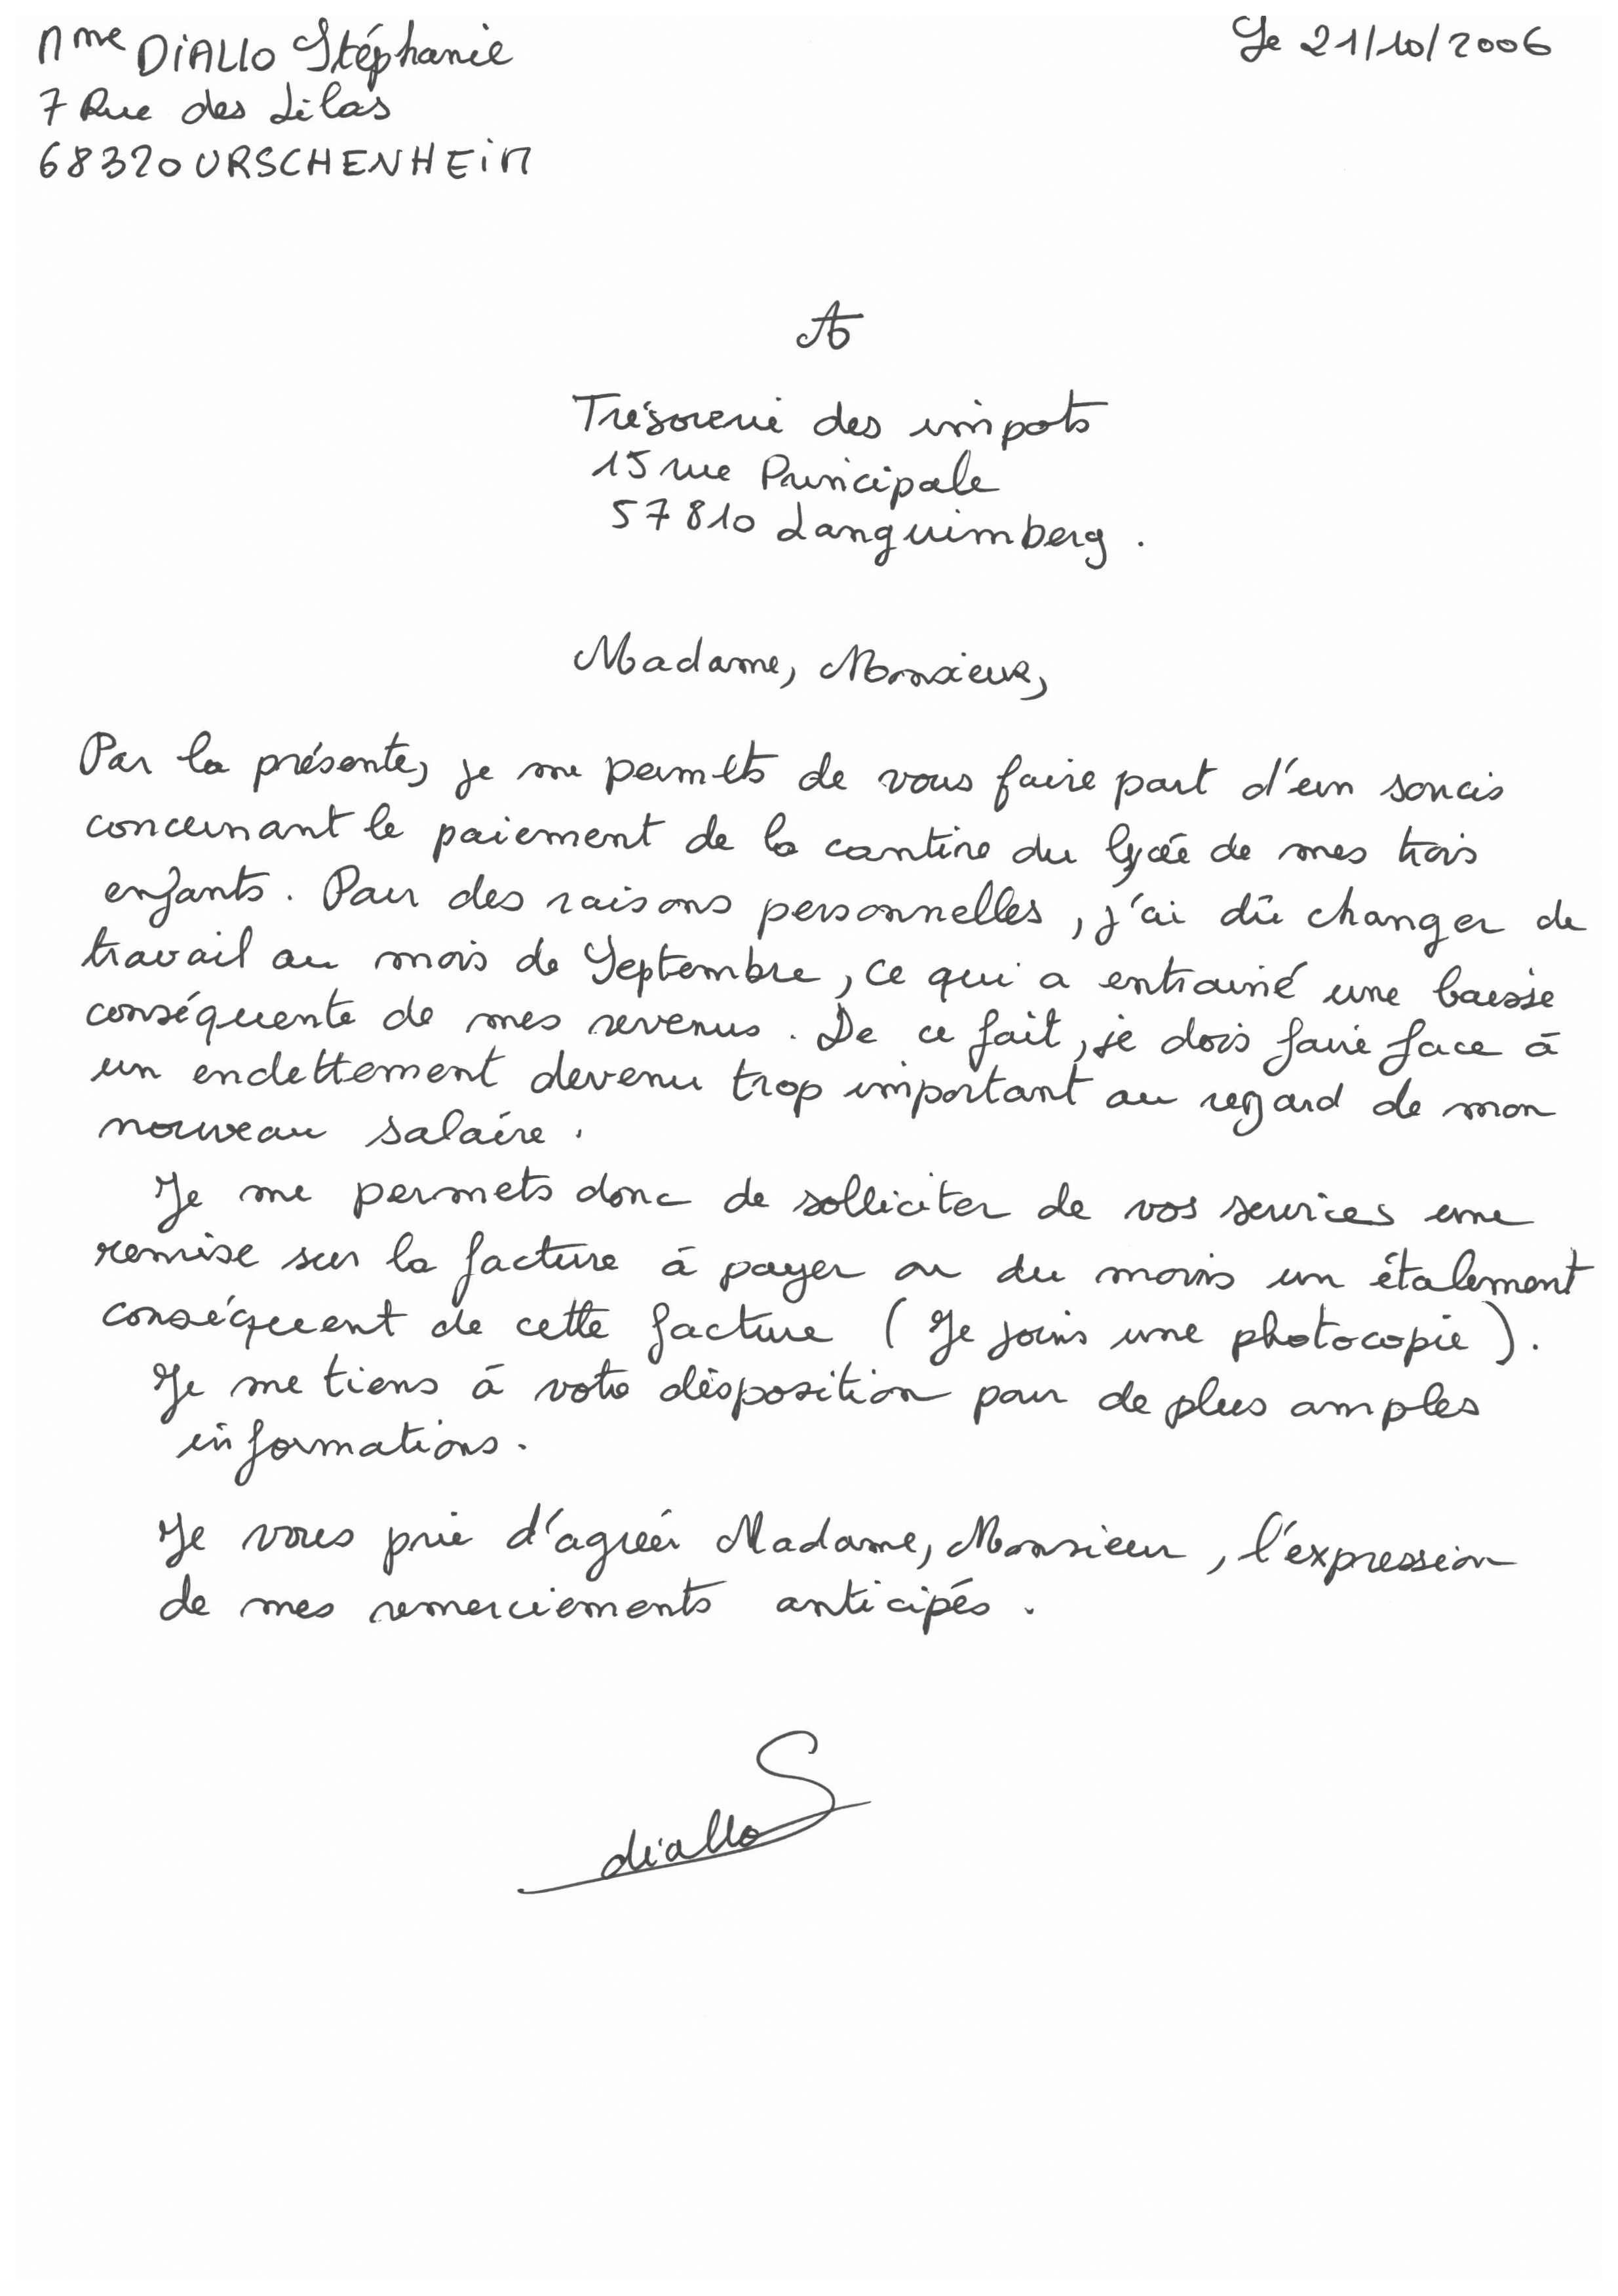 Mme DiALLO Stéphanie
Le 21/10/2006
7 Rue des Lilas
68320 URSCHENHEiM
A
Trésorerie des impots
15 rue Principale
57810 Languimberg.
Madame, Monsieur,
Par la présente, je me permets de vous faire part d'un soucis
concernant le paiement de la cantine du lycée de mes trois
enfants. Pour des raisons personnelles, j'ai dû changer de
travail au mois de Septembre, ce qui a entrainé une baisse
conséquente de mes revenus. De ce fait, je dois faire face à
un endettement devenu trop important au regard de mon
nouveau salaire.
Je me permets donc de solliciter de vos services une
remise sur la facture à payer ou du moins un étalement
conséquent de cette facture (Je joins une photocopie).
Je me tiens à votre disposition pour de plus amples
informations.
Je vous prie d'agréer Madame, Monsieur, l'expression
de mes remerciements anticipés.
diallo S